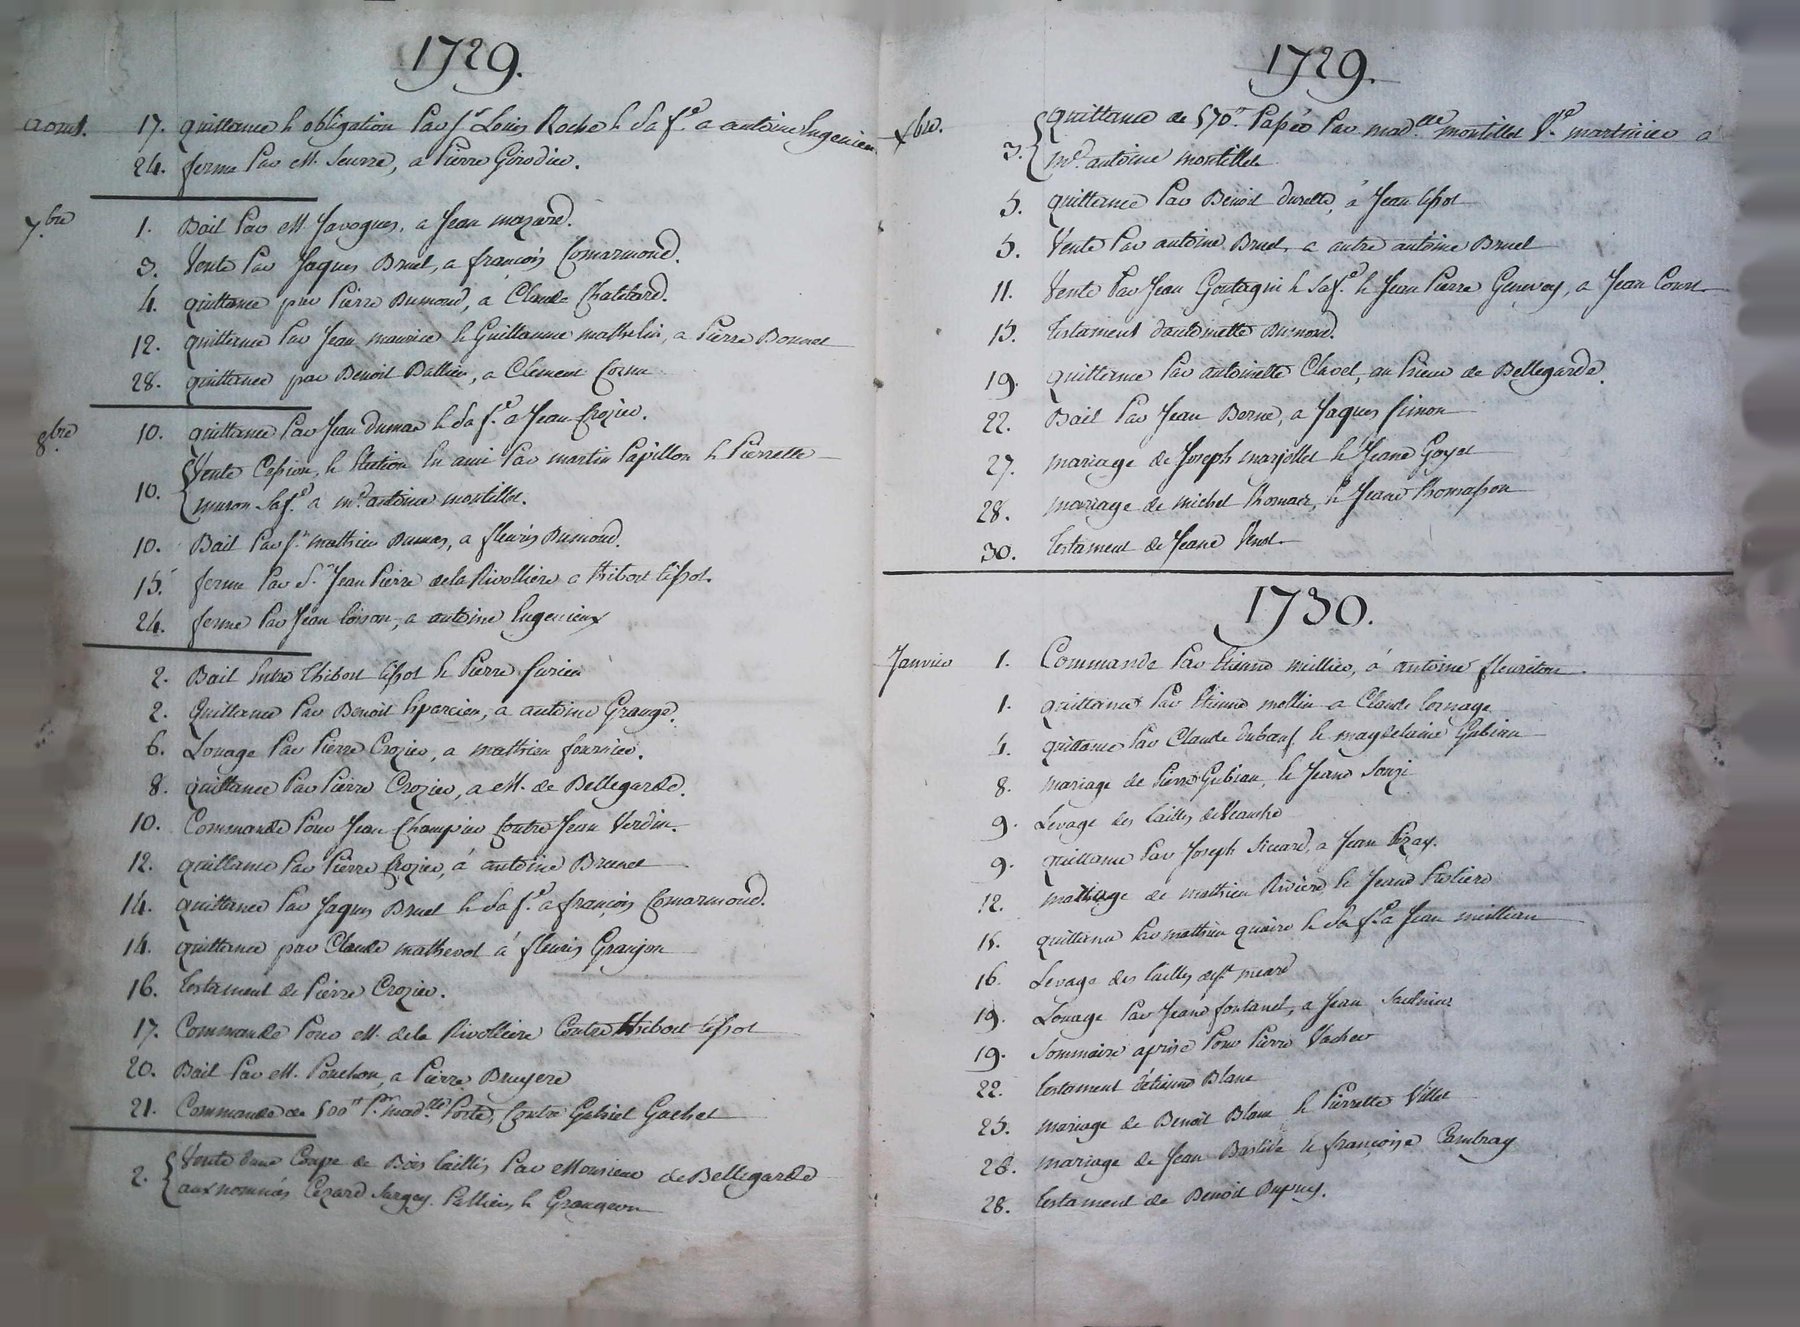 1729.
aoust. 17. quittance & obligation Par Sr. Louis Roche & Sa fe. a antoine Ingenieux
24. ferme Par M. Seurre, a Pierre Girodier.
7.bre 1. Bail Par M. Javogues, a Jean mazard.
3. Vente Par Jaques Bruel, a françois Comarmond.
4. quittance par Pierre Dumond, a Claude Chatelard.
12. quittance Par Jean maurice & Guillaume mathelin, a Pierre Bonnet
28. quittance par Benoit Dallier, a Clement Cornu
8.bre 10. quittance Par Jean dumas & Sa fe. a Jean Crozier.
10. Vente Cession, & Election En ami Par martin Papillon & Pierrette
muron Sa fe. a me. antoine montillet.
10. Bail Par Sr. mathieu Dumas, a fleuris Dumond.
15. ferme Par Sr. Jean Pierre de la Rivolliere a thibost tissot.
24. ferme Par Jean loison, a antoine Ingenieux
2. Bail Entre thibost tissot & Pierre
2. Quittance Par Benoit Eparcieu, a antoine Grange.
6. Louage Par Pierre Crozier, a mathieu fournier.
8. quittance Par Pierre Crozier, a M. de Bellegarde.
10. Commande Pour Jean Champier Contre Jean Verdin.
12. quittance Par Pierre Crozier, á antoine Brunel
14. quittance Par Jaques Bruel & Sa fe. a françois Comarmond.
14. quittance par Claude mathevot á fleuris Granjon
16. testament de Pierre Crozier.
17. Commande Pour M. de la Rivolliere Contre thibost tissot
20. Bail Par M. Ponchon, a Pierre Bruyere
21. Commande de 500tt Pr. madlle. Porte, Contre Gabriel Gachet
2. Vente dune Coupe de Bois taillis Par Monsieur de Bellegarde
aux nommés Cezard Pallieu, & Grangeon
1729.
xbre. 3. Quittance de 570tt Passée Par madlle. montillet Ve. martinier a
me. antoine montillet
5. quittance Par Benoit durelle, a Jean tissot
5. Vente Par antoine Bruel, a autre antoine Bruel
11. Vente Par Jean Goutagni & Sa fe. & Jean Pierre Genevoy, a Jean Court
15. testament dantoinette Dumond.
19. quittance Par antoinette Clavel, au Prieur de Bellegarde.
22. Bail Par Jean Berne, a Jaques Simon
27. mariage de Joseph marjollet & Jeane Goyet
28. mariage de michel thomas, & Jeane thomasson
30. testament de Jeane Venet
1730.
Janvier 1. Commande Par Etienne millier, á antoine fleuriton.
1. quittance Par Etienne mollin a Claude tornage
4. quittance Par Claude duboeuf & magdelaine Gubian
8. mariage de Pierre Gubian, & Jeane
9. Levage des tailles de Veauche
9. quittance Par Joseph Sicard, a Jean Pezay.
12. mariage de mathieu Riviere & Jeane
15. quittance Par mathieu & Sa fe. a Jean
16. Levage des tailles de St. medard
19. Louage Par Jeane fontanel, a Jean Saulnier
19. Sommaire aprise Pour Pierre Vacher
22. testament détienne Blanc
25. mariage de Benoit Blanc & Pierrette Villet
28. mariage de Jean Bastide & françoise Cambray
28. testament de Benoit Dupuy.